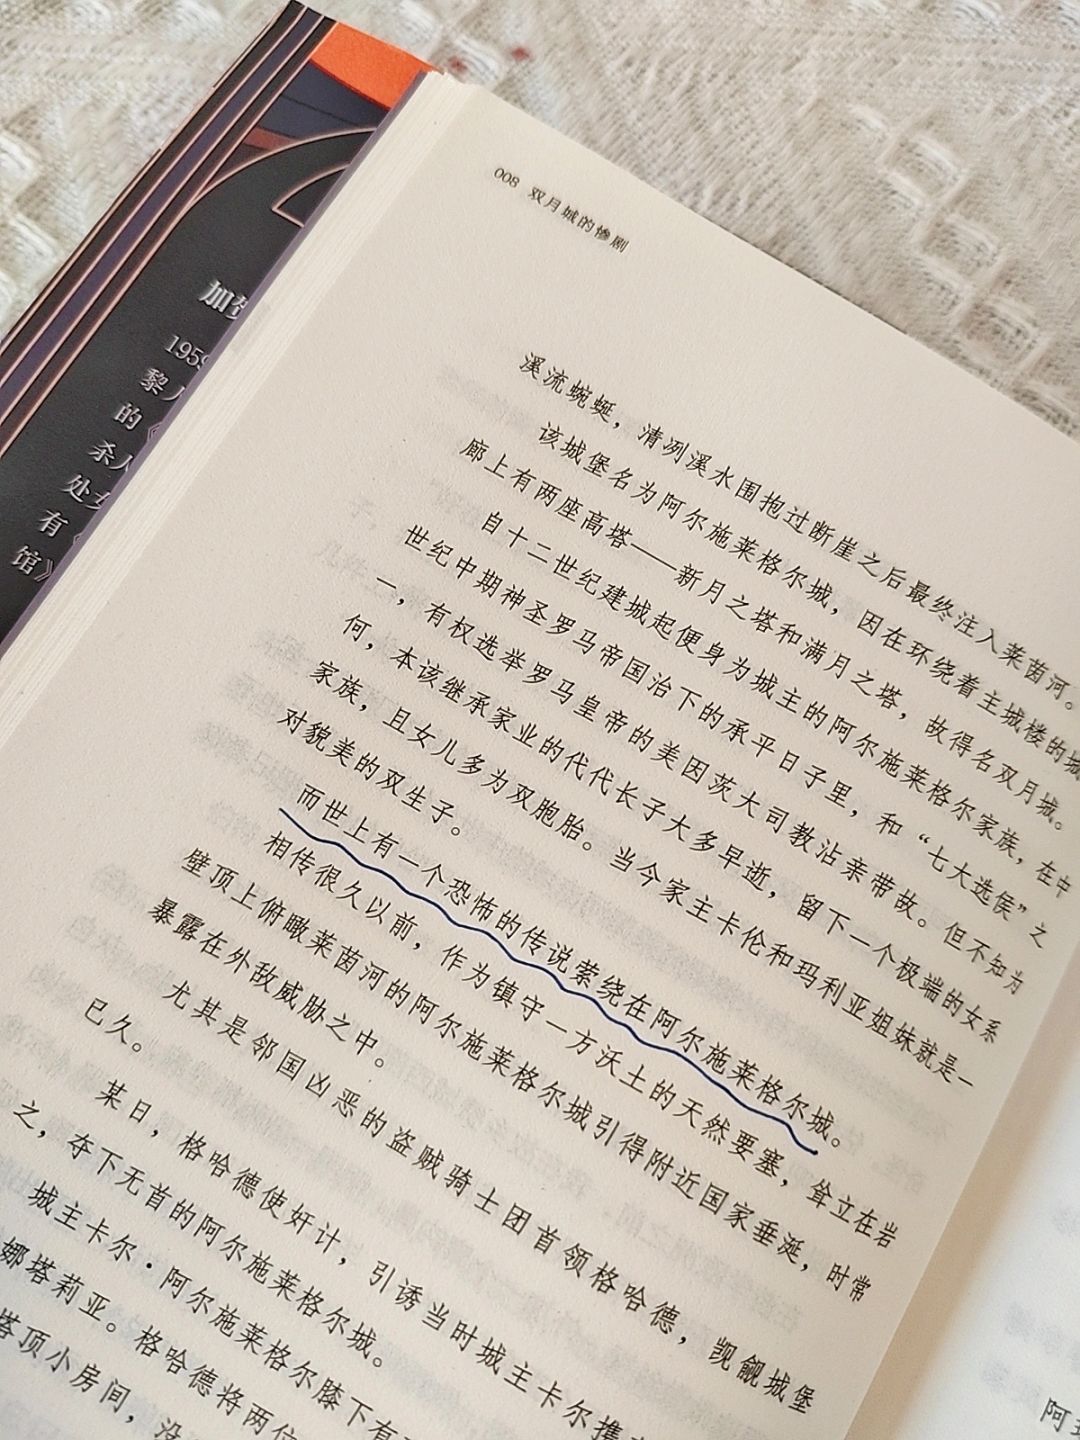 008 双月城的惨剧
溪流蜿蜒，清冽溪水围抱过断崖之后最终注入莱茵河。
该城堡名为阿尔施莱格尔城，因在环绕着主城楼的城
廊上有两座高塔——新月之塔和满月之塔，故得名双月城。
自十二世纪建城起便身为城主的阿尔施莱格尔家族，在中
世纪中期神圣罗马帝国治下的承平日子里，和“七大选侯”之
一，有权选举罗马皇帝的美因茨大司教沾亲带故。但不知为
何，本该继承家业的代代长子大多早逝，留下一个极端的女系
家族，且女儿多为双胞胎。当今家主卡伦和玛利亚姐妹就是一
对貌美的双生子。
而世上有一个恐怖的传说萦绕在阿尔施莱格尔城。
相传很久以前，作为镇守一方沃土的天然要塞，耸立在岩
壁顶上俯瞰莱茵河的阿尔施莱格尔城引得附近国家垂涎，时常
暴露在外敌威胁之中。
尤其是邻国凶恶的盗贼骑士团首领格哈德，觊觎城堡
已久。
某日，格哈德使奸计，引诱当时城主卡尔携
之，夺下无首的阿尔施莱格尔城。
城主卡尔·阿尔施莱格尔膝下有
娜塔莉亚。格哈德将两位
塔顶小房间，没
加
1959
黎人
的
杀人
处女
有
馆》